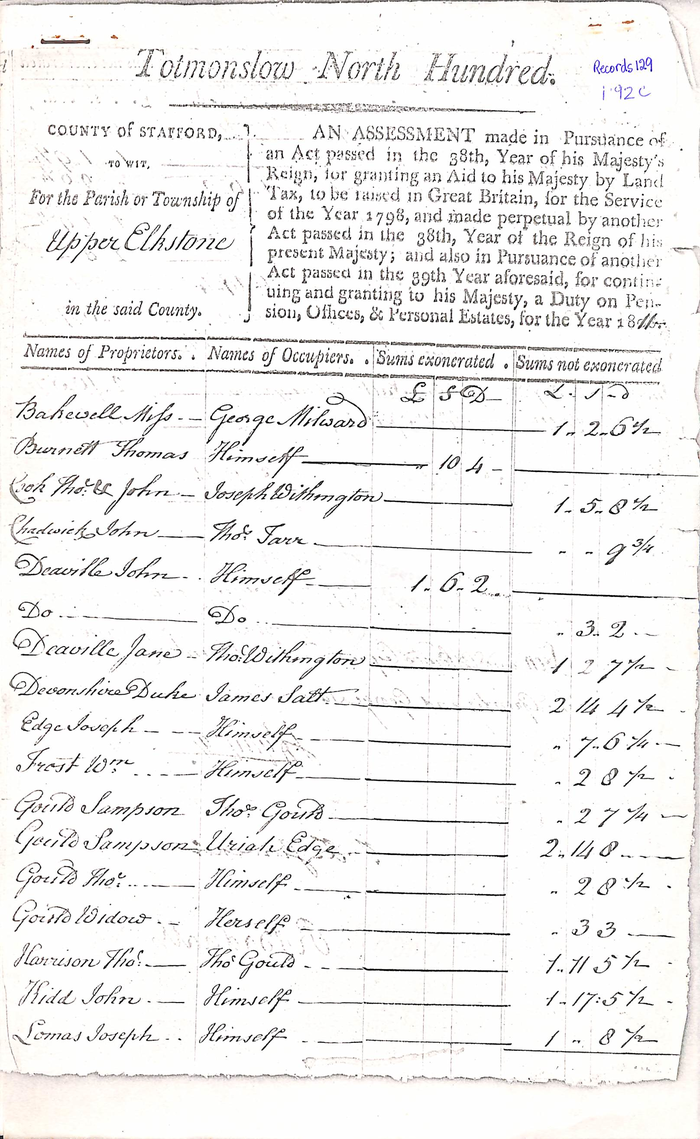 Totmonslow North Hundred.
Records 129
192C
COUNTY of STAFFORD,
TO WIT,
For the Parish or Township of
Upper Elkstone
in the said County.
AN ASSESSMENT made in Pursuance of
an Act passed in the 38th, Year of his Majesty's
Reign, for granting an Aid to his Majesty by Land
Tax, to be raised in Great Britain, for the Service
of the Year 1798, and made perpetual by another
Act passed in the 38th, Year of the Reign of his
present Majesty; and also in Pursuance of another
Act passed in the 39th Year aforesaid, for contin-
uing and granting to his Majesty, a Duty on Pen-
sion, Offices, & Personal Estates, for the Year 18
Names of Proprietors. . Names of Occupiers. . Sums exonerated . Sums not exonerated
£ S D £ S d
Bakewell Miss George Milward 1 .. 2 .. 6½
Burnett Thomas Himself " 10 4
Cook Thos. & John Joseph Withington 1 .. 5 .. 8½
Chadwick John Thos. Tarr " " 9¾
Deaville John Himself 1 .. 6 .. 2
Do Do " 3 .. 2
Deaville Jane Thos. Withington 1 2 7½
Devonshire Duke James Salt 2 14 4½
Edge Joseph Himself " 7 .. 6¼
Frost Wm. Himself " 2 8½
Gould Sampson Thos. Gould " 2 7¼
Gould Sampson Uriah Edge 2 .. 14 8
Gould Thos. Himself " 2 8½
Gould Widow Herself " 3 3
Harrison Thos. Thos. Gould 1 .. 11 5½
Kidd John Himself 1 .. 17 : 5½
Lomas Joseph Himself 1 " 8½